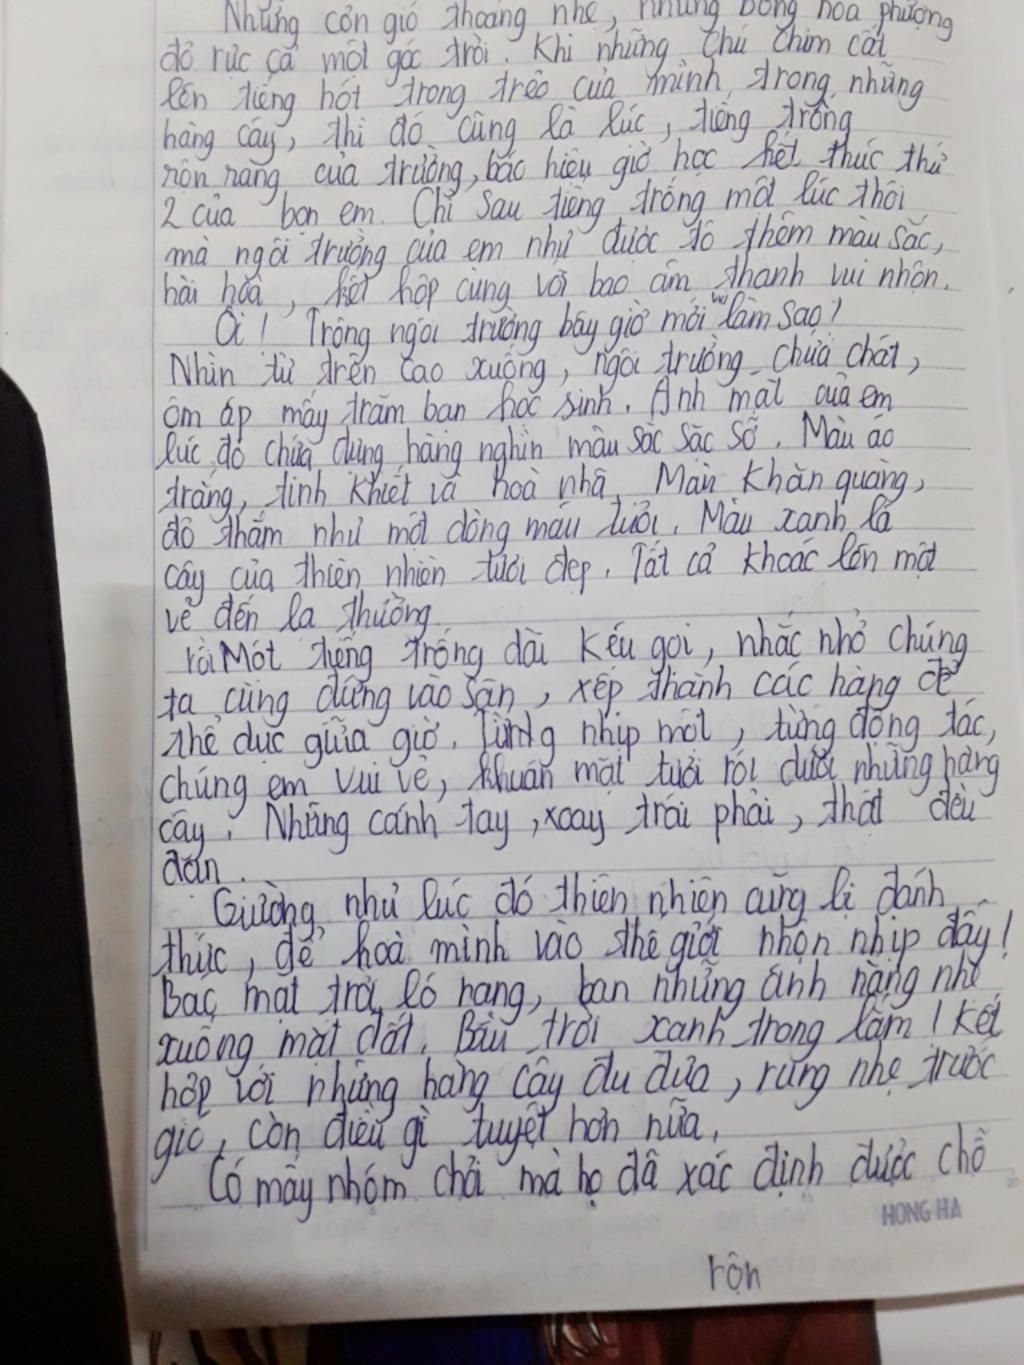 Những cơn gió thoang nhẹ, những bông hoa phượng
đỏ rực cả một góc trời. Khi những chú chim cất
lên tiếng hót trong trẻo của mình, trong những
hàng cây, thì đó cũng là lúc, tiếng trống
rộn ràng của trường, báo hiệu giờ học kết thúc thứ
2 của bọn em. Chỉ sau tiếng trống một lúc thôi
mà ngôi trường của em như được tô thêm màu sắc,
hài hoà, kết hợp cùng với bao âm thanh vui nhộn.
Ôi! Trông ngôi trường bây giờ mới vui làm sao!
Nhìn từ trên cao xuống, ngôi trường chứa chất,
ôm ấp mấy trăm bạn học sinh. Ánh mắt của em
lúc đó chứa đựng hàng nghìn màu sắc sặc sỡ. Màu áo
trắng, tinh khiết và hoà nhã. Màu khăn quàng,
đỏ thắm như một dòng máu tươi. Màu xanh lá
cây của thiên nhiên tươi đẹp. Tất cả khoác lên một
vẻ đến la thường.
rồi Một tiếng trống dài kêu gọi, nhắc nhở chúng
ta cùng đứng vào sân, xếp thành các hàng để
thể dục giữa giờ. Từng nhịp một, từng động tác,
chúng em vui vẻ, khuân mặt tươi rói dưới những hàng
cây. Những cánh tay, xoay trái phải, thật đều
đặn.
Giường như lúc đó thiên nhiên cũng bị đánh
thức, để hoà mình vào thế giới nhộn nhịp đấy!
Bác mặt trời ló rạng, ban những ánh nắng nhẹ
xuống mặt đất. Bầu trời xanh trong lắm! Kết
hợp với những hàng cây đu đưa, rung nhẹ trước
gió, còn điều gì tuyệt hơn nữa.
Có mấy nhóm chơi mà họ đã xác định được chỗ
HONG HA
rộn